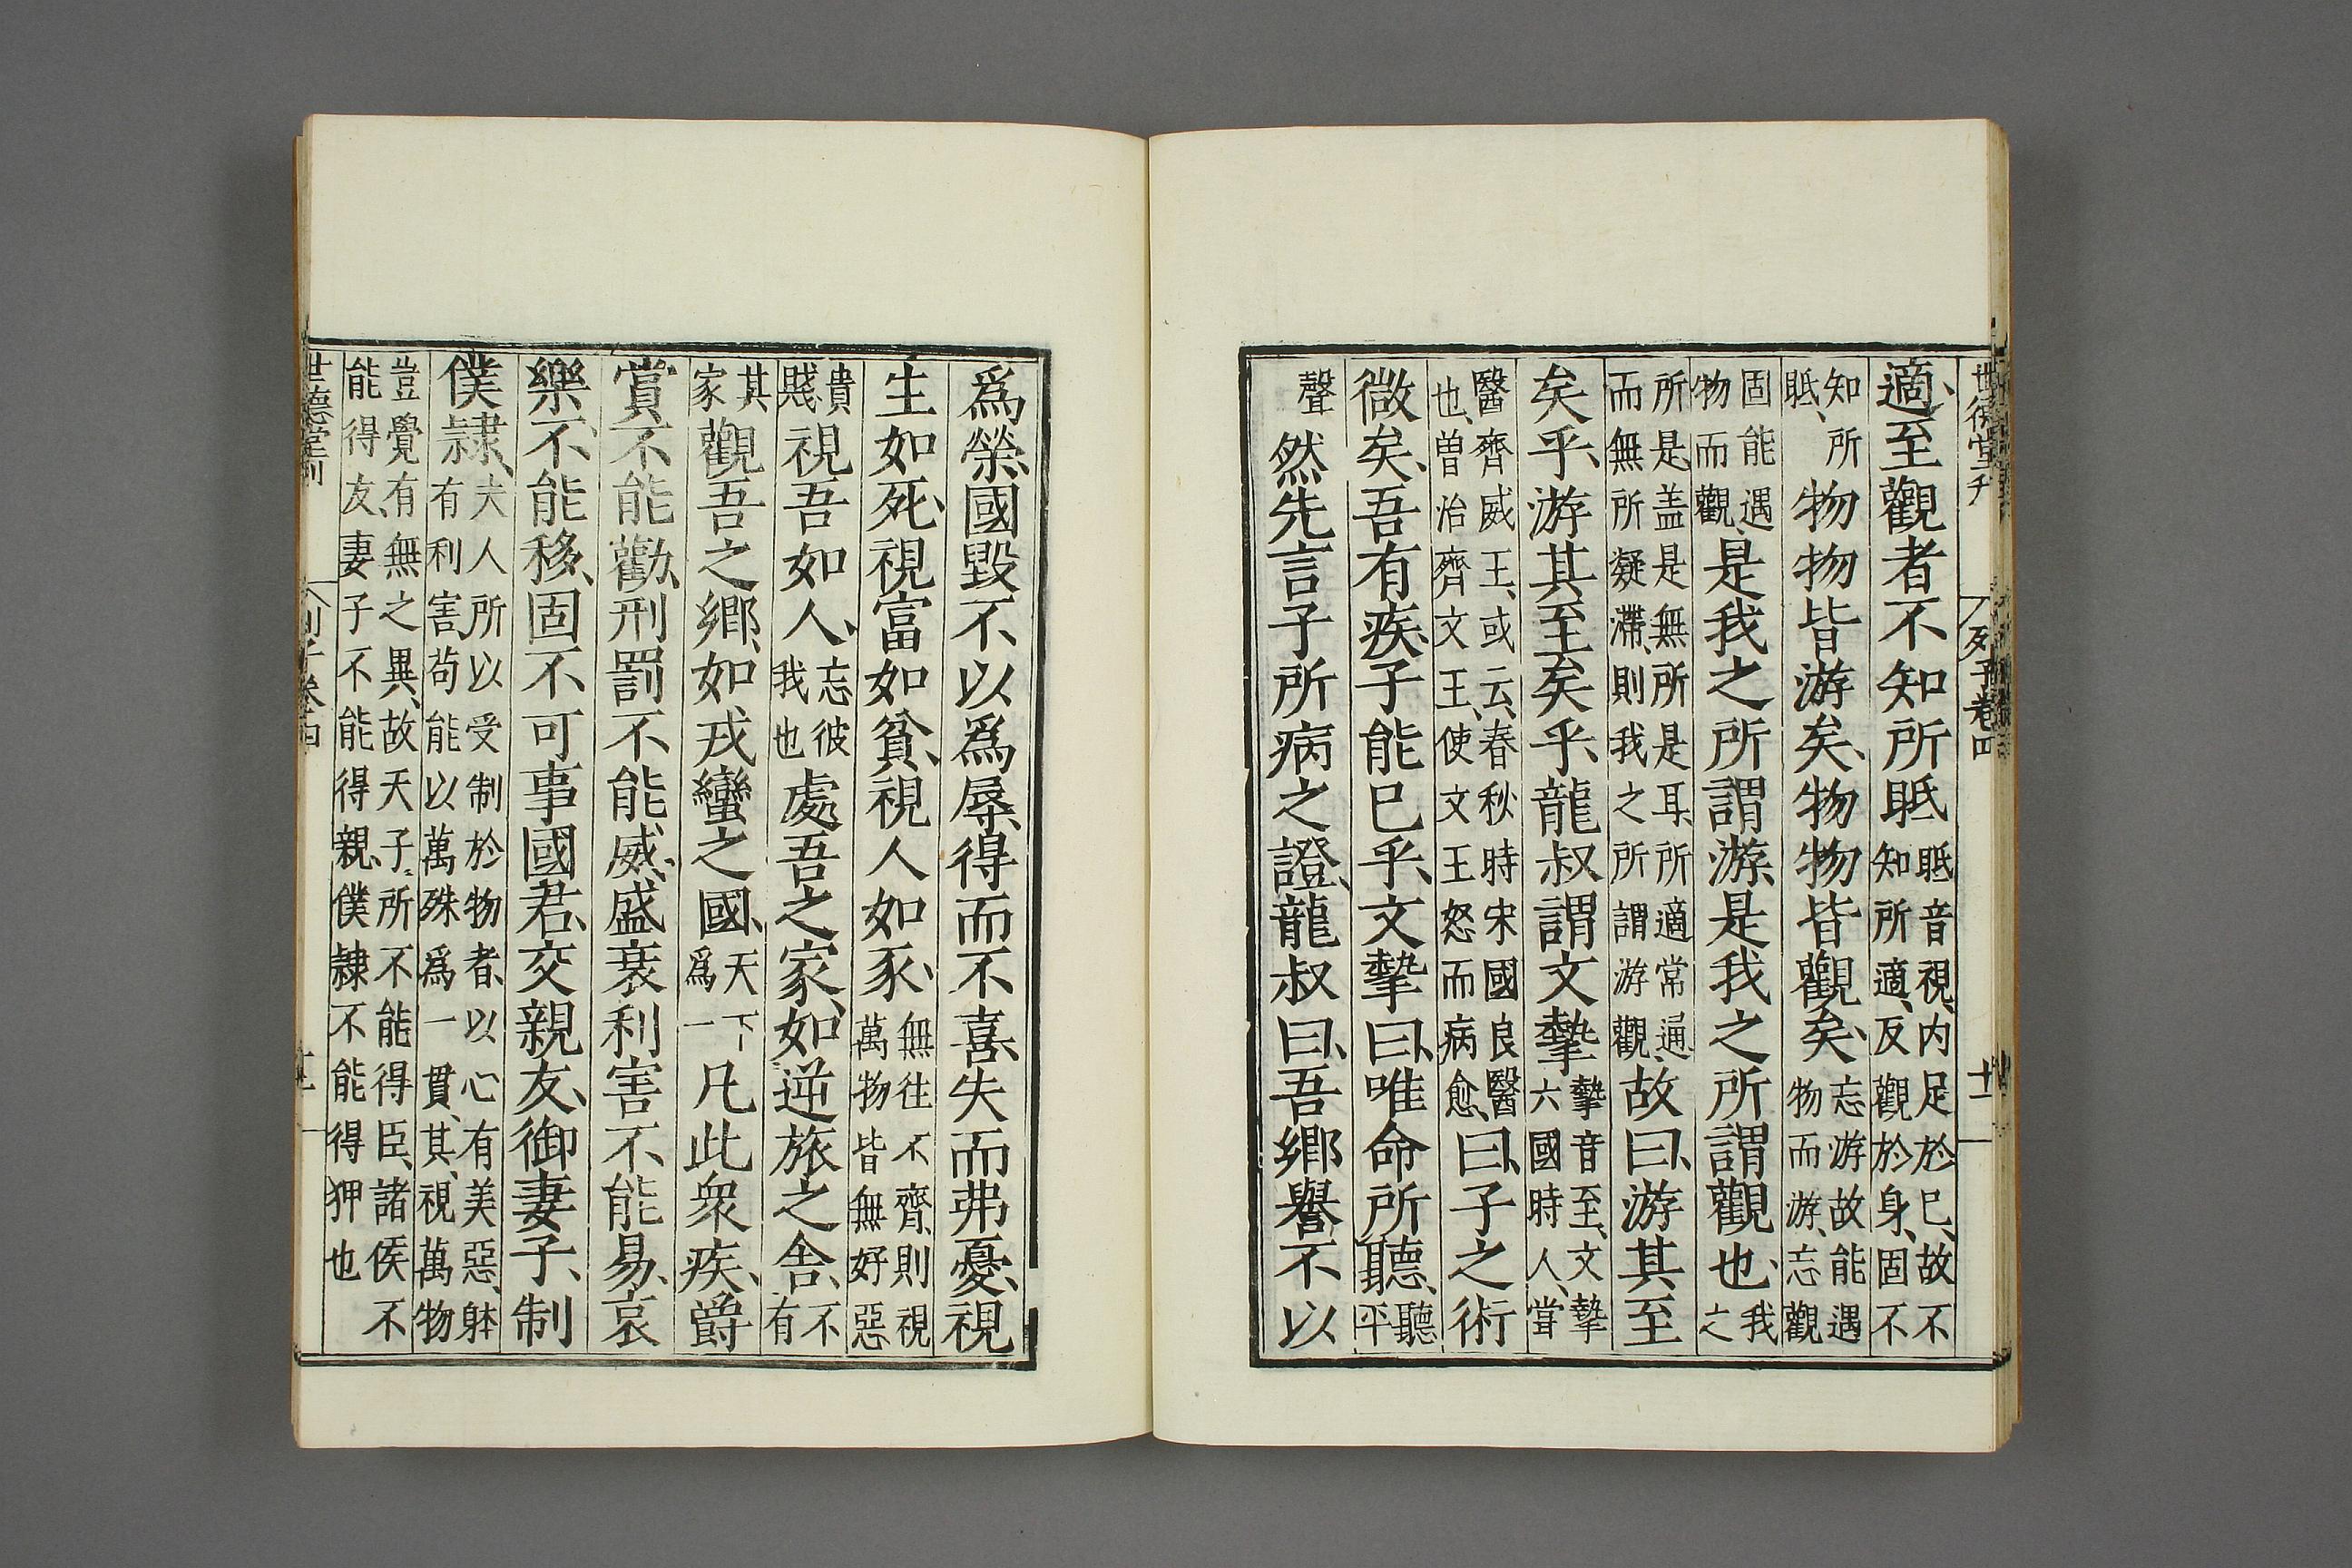 世德堂刊 列子卷四 十一
適、至觀者不知所眂眂音視、内足於巳、故不知所適、反觀於身、固不
知所眂、物物皆游矣、物物皆觀矣、忘游故能遇物而游、忘觀
固能遇物而觀、是我之所謂游、是我之所謂觀也、我之
所是盖是無所是耳、所適常通、而無所凝滯、則我之所謂游觀、故曰、游其至
矣乎、游其至矣乎、龍叔謂文摯摯音至、文摯六國時人、甞
醫齊威王、或云、春秋時宋國良醫也、曽治齊文王、使文王怒而病愈、曰、子之術
微矣、吾有疾、子能巳乎、文摯曰、唯命所聽、聽平
聲然先言子所病之證、龍叔曰、吾鄉譽不以
爲榮、國毀不以爲辱、得而不喜、失而弗憂、視
生如死、視富如貧、視人如豕、無往不齊、則視萬物皆無好惡
視吾如人、忘彼我也處吾之家、如逆旅之舍、不有
其家觀吾之鄉、如戎蠻之國、天下爲一凡此衆疾、爵
賞不能勸、刑罰不能威、盛衰利害不能易、哀
樂、不能移、固不可事國君、交親友、御妻子、制
僕隷、夫人所以受制於物者、以心有美惡、躰有利害、茍能以萬殊爲一貫、其視萬物
豈覺有、無之異、故天子所不能得臣、諸侯不能得友、妻子不能得親、僕隷不能得狎也
世德堂刊 列子卷四